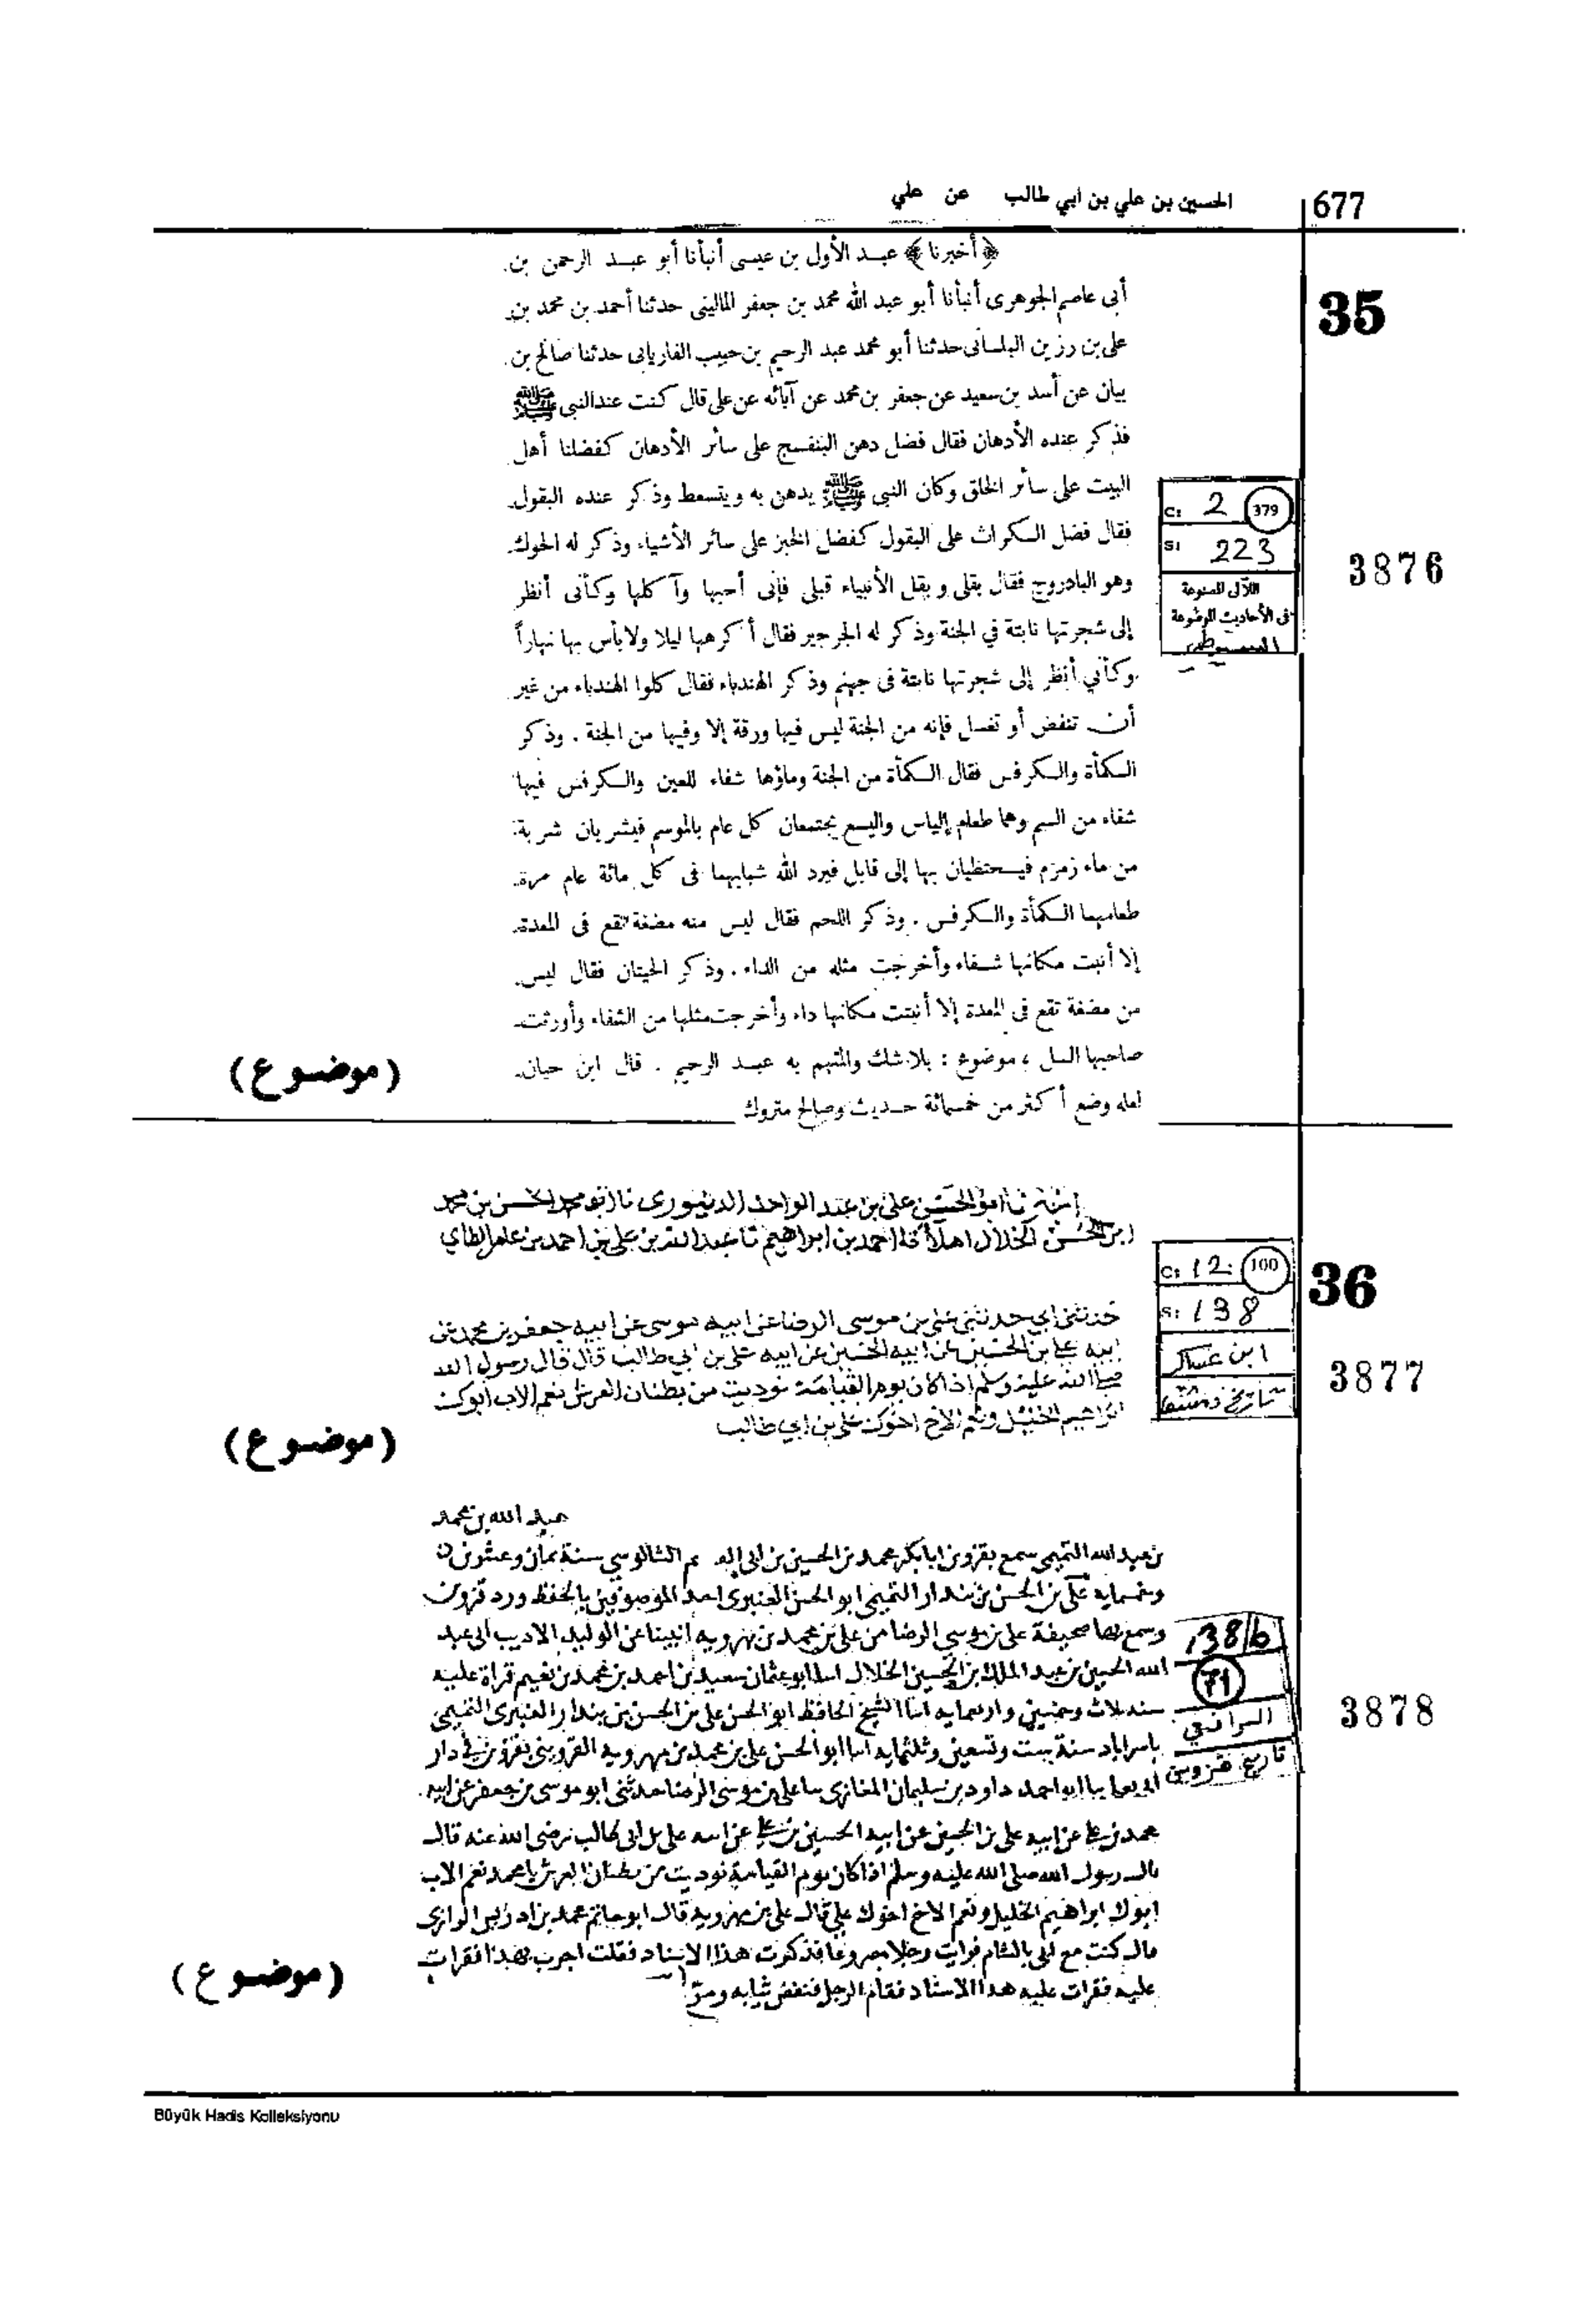 677
الحسين بن علي بن ابي طالب عن علي
35
﴿أخبرنا﴾ عبد الأول بن عيسى أنبأنا أبو عبد الرحمن بن
أبى عاصم الجوهرى أنبأنا أبو عبد الله محمد بن جعفر المالينى حدثنا أحمد بن محمد بن
على بن رزين البلسانى حدثنا أبو محمد عبد الرحيم بن حبيب الفاريابى حدثنا صالح بن
بيان عن أسد بن سعيد عن جعفر بن محمد عن آبائه عن على قال كنت عند النبى ﷺ
فذكر عنده الأدهان فقال فضل دهن البنفسج على سائر الأدهان كفضلنا أهل
البيت على سائر الخلق وكان النبى ﷺ يدهن به ويتسعط وذكر عنده البقول
فقال فضل الكراث على البقول كفضل الخبز على سائر الأشياء وذكر له الحوك
وهو الباذروج فقال بقلى وبقل الأنبياء قبلى فإنى أحبها وآكلها وكأنى أنظر
إلى شجرتها نابتة في الجنة وذكر له الجرجير فقال أكرهها ليلا ولا بأس بها نهاراً
وكأني أنظر إلى شجرتها نابتة فى جهنم وذكر الهندباء فقال كلوا الهندباء من غير
أن تنفض أو تغسل فإنه من الجنة ليس فيها ورقة إلا وفيها من الجنة . وذكر
الكمأة والكرفس فقال الكمأة من الجنة وماؤها شفاء للعين والكرفس فيها
شفاء من السم وهما طعام إلياس واليسع يجتمعان كل عام بالموسم فيشربان شربة
من ماء زمزم فيحتظيان بها إلى قابل فيرد الله شبابهما فى كل مائة عام مرة
طعامهما الكمأة والكرفس . وذكر اللحم فقال ليس منه مضغة تقع فى المعدة
إلا أنبتت مكانها شفاء وأخرجت مثله من الداء . وذكر الحيتان فقال ليس
من مضغة تقع فى المعدة إلا أنبتت مكانها داء وأخرجت مثلها من الشفاء وأورثت
صاحبها السل ، موضوع : بلا شك والمتهم به عبد الرحيم . قال ابن حبان
لعله وضع أكثر من خمسمائة حديث وصالح متروك
(موضوع)
C: 2 379
S: 223
اللآلى المصنوعة
فى الأحاديث الموضوعة
السيوطى
3876
36
ابو الحسن على بن عبد الواحد الدينورى نا ابو محمد الحسن بن محمد
ابن الحسن الخلال املا نا احمد بن ابراهيم نا عبد الله بن علي بن احمد بن عامر الطاي
حدثني ابي حدثني علي بن موسى الرضا عن ابيه موسى عن ابيه جعفر بن محمد عن
ابيه علي بن الحسين عن ابيه الحسين عن ابيه علي بن ابي طالب قال قال رسول الله
صلى الله عليه وسلم اذا كان يوم القيامة نوديت من بطنان العرش نعم الاب ابوك
ابراهيم الخليل ونعم الاخ اخوك علي بن ابي طالب
(موضوع)
C: 12 100
S: 138
ابن عساكر
تاريخ دمشق
3877
عبد الله بن محمد
بن عبد الله التميمى سمع بقزوين ابا بكر محمد بن الحسين بن ابى الشالوسي سنة ثمان وعشرين
وخمسمايه على بن الحسن بن بندار التميمى ابو الحسن العنبرى احد الموصوفين بالحفظ ورد قزوين
وسمع بها صحيفة على بن موسي الرضا من على بن محمد بن مهرويه انبينا عن الوليد الاديب ابى عبد
الله الحسين بن عبد الملك بن الحسين الخلال ابنا ابو عثمان سعيد بن احمد بن محمد بن نعيم قراة عليه
سنة ثلاث وخمسين واربعمايه انا الشيخ الحافظ ابو الحسن على بن الحسن بن بندار العنبرى التميمى
باستراباد سنة ست وتسعين وثلثمايه انا ابو الحسن على بن محمد بن مهرويه القزوينى بقزوين في دار
ابو احمد داود بن سليمان الغازى على بن موسى الرضا حدثنى ابو موسى بن جعفر عن ابيه
محمد بن علي عن ابيه على بن الحسين عن ابيه الحسين بن علي عن ابيه على بن ابى طالب رضى الله عنه قال
قال رسول الله صلى الله عليه وسلم اذا كان يوم القيامة نوديت من بطنان العرش يا محمد نعم الاب
ابوك ابراهيم الخليل ونعم الاخ اخوك علي قال على بن مهرويه قال ابو حاتم محمد بن ادريس الرازى
قال كنت مع ابى بالشام فرايت رجلا مصروعا فذكرت هذا الاسناد فقلت اجرب بهذا فقرات
عليه فقرات عليه هذا الاسناد فقام الرجل فنفض ثيابه ومر
(موضوع)
138/b
71
الرافعي
تاريخ قزوين
3878
Büyük Hadis Kolleksiyonu